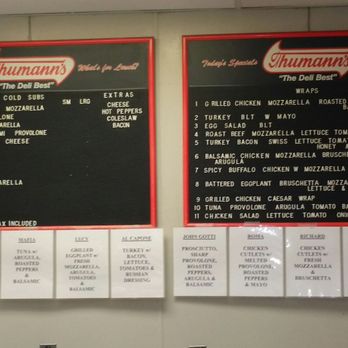 Thumann's
What's for Lunch?
"The Deli Best"
COLD SUBS SM LRG EXTRAS
MOZZARELLA CHEESE
LONE HOT PEPPERS
ARELLA COLESLAW
AMI PROVOLONE BACON
CHEESE
ARELLA
AX INCLUDED
Today's Specials
Thumann's
"The Deli Best"
WRAPS
1 GRILLED CHICKEN MOZZARELLA ROASTED
BA
2 TURKEY BLT W MAYO
3 EGG SALAD BLT
4 ROAST BEEF MOZZARELLA LETTUCE TOM
5 TURKEY BACON SWISS LETTUCE TOMATO
HONEY
6 BALSAMIC CHICKEN MOZZARELLA BRUSCHE
ARUGULA
7 SPICY BUFFALO CHICKEN W MOZZARELLA
8 BATTERED EGGPLANT BRUSCHETTA MOZZ
LETTUCE &
9 GRILLED CHICKEN CAESAR WRAP
10 TUNA PROVOLONE ARUGULA TOMATO BA
11 CHICKEN SALAD LETTUCE TOMATO ON
MAFIA
TUNA w/
ARUGULA,
ROASTED
PEPPERS
&
BALSAMIC
LUCY
GRILLED
EGGPLANT w/
FRESH
MOZZARELLA,
ARUGULA,
TOMATOES
&
BALSAMIC
AL CAPONE
TURKEY w/
BACON,
LETTUCE,
TOMATOES &
RUSSIAN
DRESSING
JOHN GOTTI
PROSCIUTTO,
SHARP
PROVOLONE,
ROASTED
PEPPERS,
ARUGULA &
BALSAMIC
ROMA
CHICKEN
CUTLETS w/
MELTED
PROVOLONE,
ROASTED
PEPPERS
& MAYO
RICHARD
CHICKEN
CUTLETS w/
FRESH
MOZZARELLA
&
BRUSCHETTA